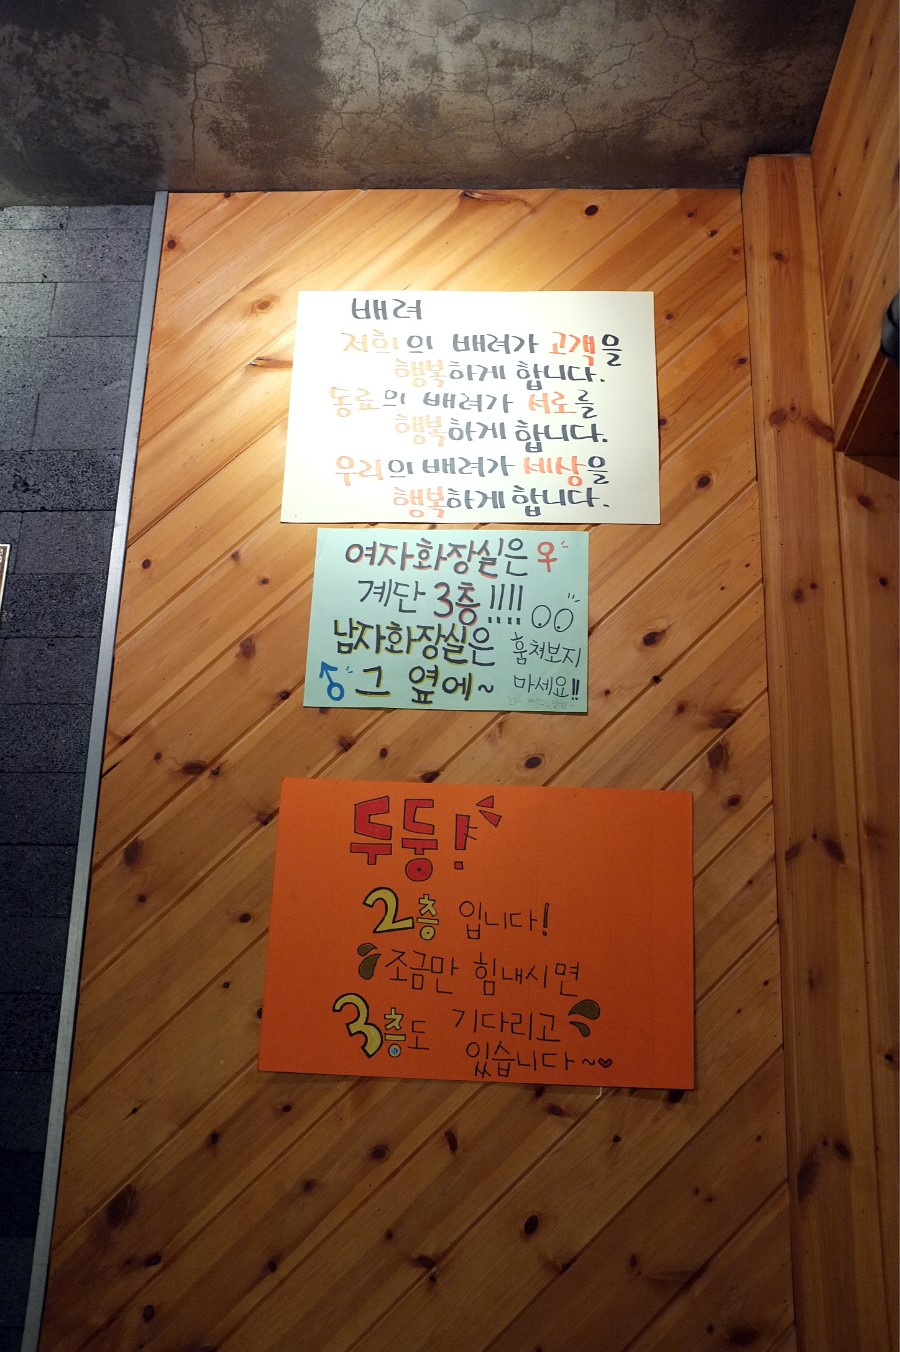 배려
저희의 배려가 고객을
행복하게 합니다.
동료의 배려가 서로를
행복하게 합니다.
우리의 배려가 세상을
행복하게 합니다.
여자화장실은
계단 3층!!!!
남자화장실은
그 옆에~
훔쳐보지
마세요!!
두둥!
2층 입니다!
조금만 힘내시면
3층도 기다리고
있습니다~